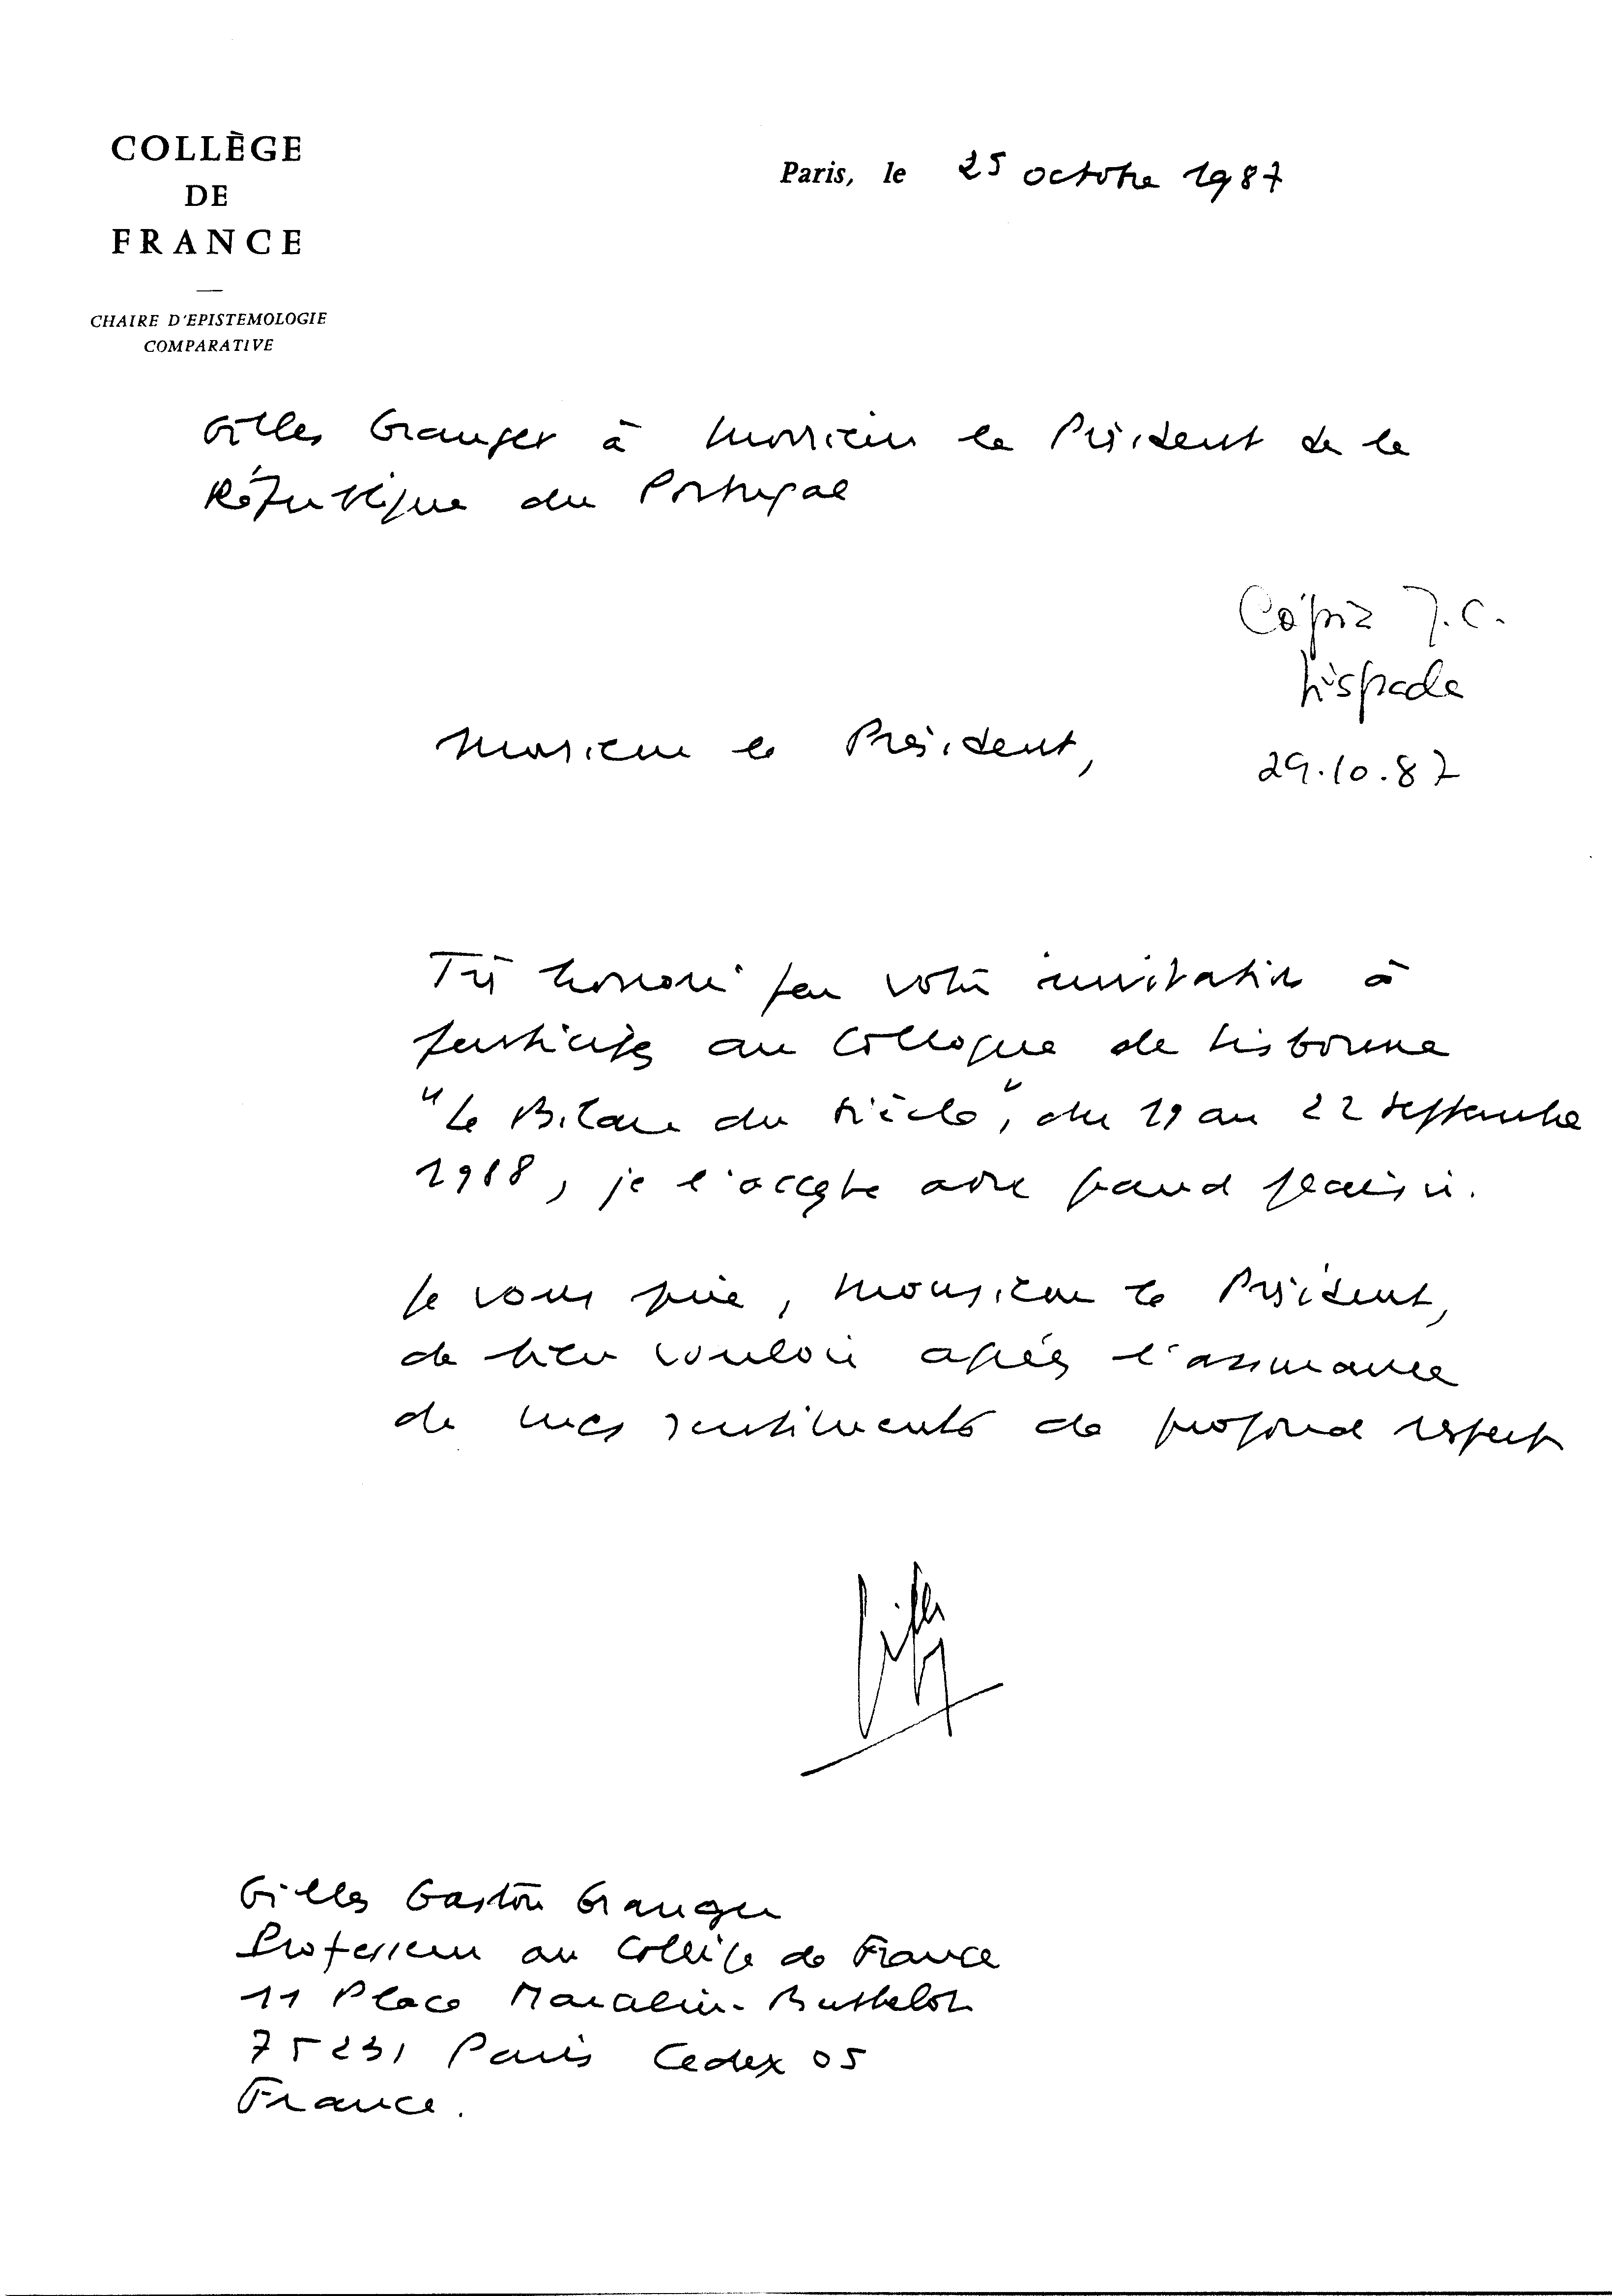 COLLÈGE
DE
FRANCE
CHAIRE D'EPISTEMOLOGIE
COMPARATIVE
Paris, le 25 octobre 1987
Gilles Granger à Monsieur le Président de la
République du Portugal
Cópia J.C.
29.10.87
Monsieur le Président,
Très honoré par votre invitation à
participer au Colloque de Lisbonne
"Le Bilan du Siècle", du 19 au 22 septembre
1988, je l'accepte avec grand plaisir.
Je vous prie, Monsieur le Président,
de bien vouloir agréer l'assurance
de mes sentiments de profond respect
Gilles Gaston Granger
Professeur au Collège de France
11 Place Marcelin-Berthelot
75231 Paris Cedex 05
France.